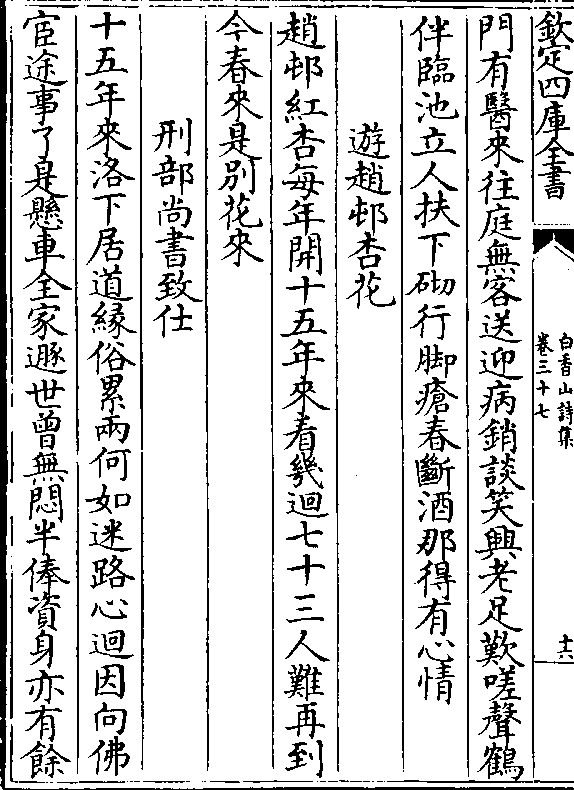 欽定四庫全書
白香山詩集
卷三十七
十六
門有醫來往庭無客送迎病銷談笑興老足歎嗟聲鶴
伴臨池立人扶下砌行脚瘡春斷酒那得有心情
遊趙邨杏花
趙邨紅杏每年開十五年來看幾迴七十三人難再到
今春來是別花來
刑部尚書致仕
十五年來洛下居道緣俗累兩何如迷路心迴因向佛
宦途事了是懸車全家遯世曾無悶半俸資身亦有餘